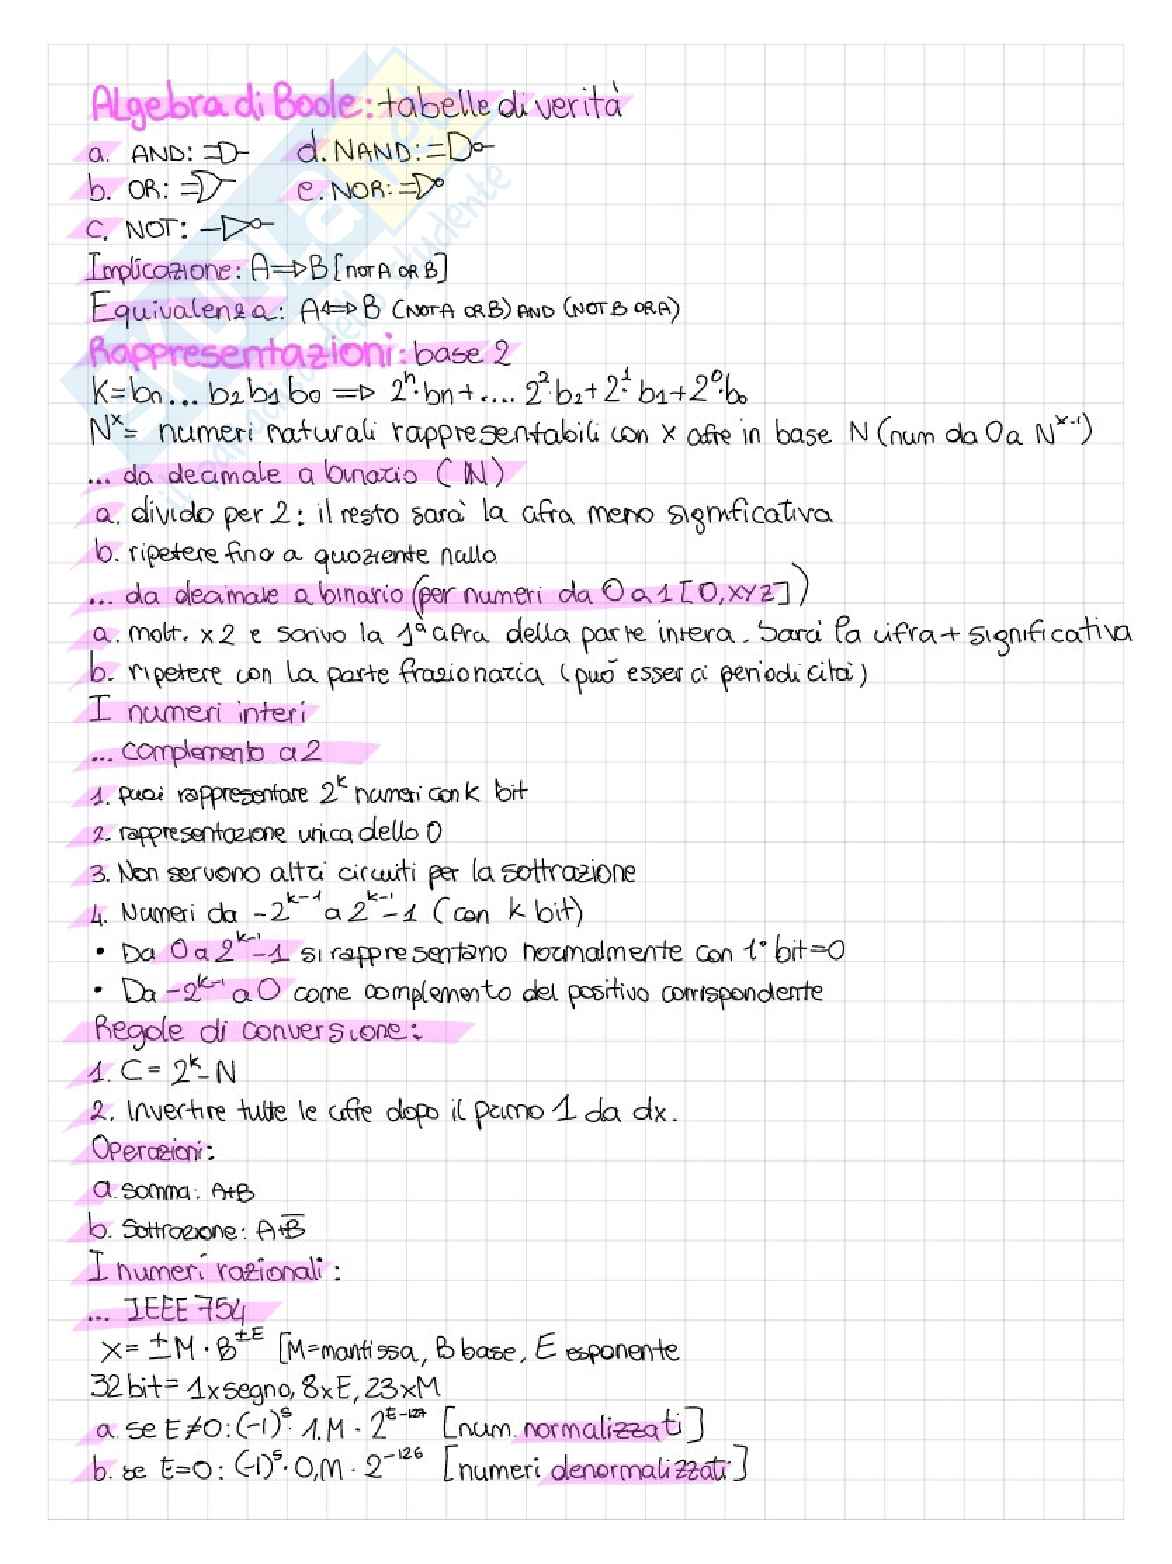 Algebra di Boole: tabelle di verità
a. AND: d. NAND:
b. OR: e. NOR:
c. NOT:
Implicazione: A⇒B [NOT A OR B]
Equivalenza: A⇔B (NOT A OR B) AND (NOT B OR A)
Rappresentazioni: base 2
K=bn... b2 b1 b0 ⇒ 2^n·bn+.... 2^2·b2+2^1·b1+2^0·b0
N^x= numeri naturali rappresentabili con x cifre in base N (num da 0 a N^x-1)
... da decimale a binario (ℕ)
a. divido per 2: il resto sarà la cifra meno significativa
b. ripetere fino a quoziente nullo
... da decimale a binario (per numeri da 0 a 1 [0,XYZ])
a. molt. x2 e scrivo la 1ª cifra della parte intera. Sarà la cifra + significativa
b. ripetere con la parte frazionaria (può esserci periodicità)
I numeri interi
... complemento a 2
1. puoi rappresentare 2^k numeri con k bit
2. rappresentazione unica dello 0
3. Non servono altri circuiti per la sottrazione
4. Numeri da -2^k-1 a 2^k-1-1 (con k bit)
• Da 0 a 2^k-1-1 si rappresentano normalmente con 1° bit=0
• Da -2^k-1 a 0 come complemento del positivo corrispondente
Regole di conversione:
1. C= 2^k-N
2. Invertire tutte le cifre dopo il primo 1 da dx.
Operazioni:
a. somma: A+B
b. Sottrazione: A+B̅
I numeri razionali:
... IEEE 754
x= ±M·B^±E [M=mantissa, B base, E esponente
32 bit= 1x segno, 8xE, 23xM
a. se E≠0: (-1)^s· 1.M · 2^E-127 [num. normalizzati]
b. se E=0: (-1)^s· 0,M · 2^-126 [numeri denormalizzati]
SKUOLA.net